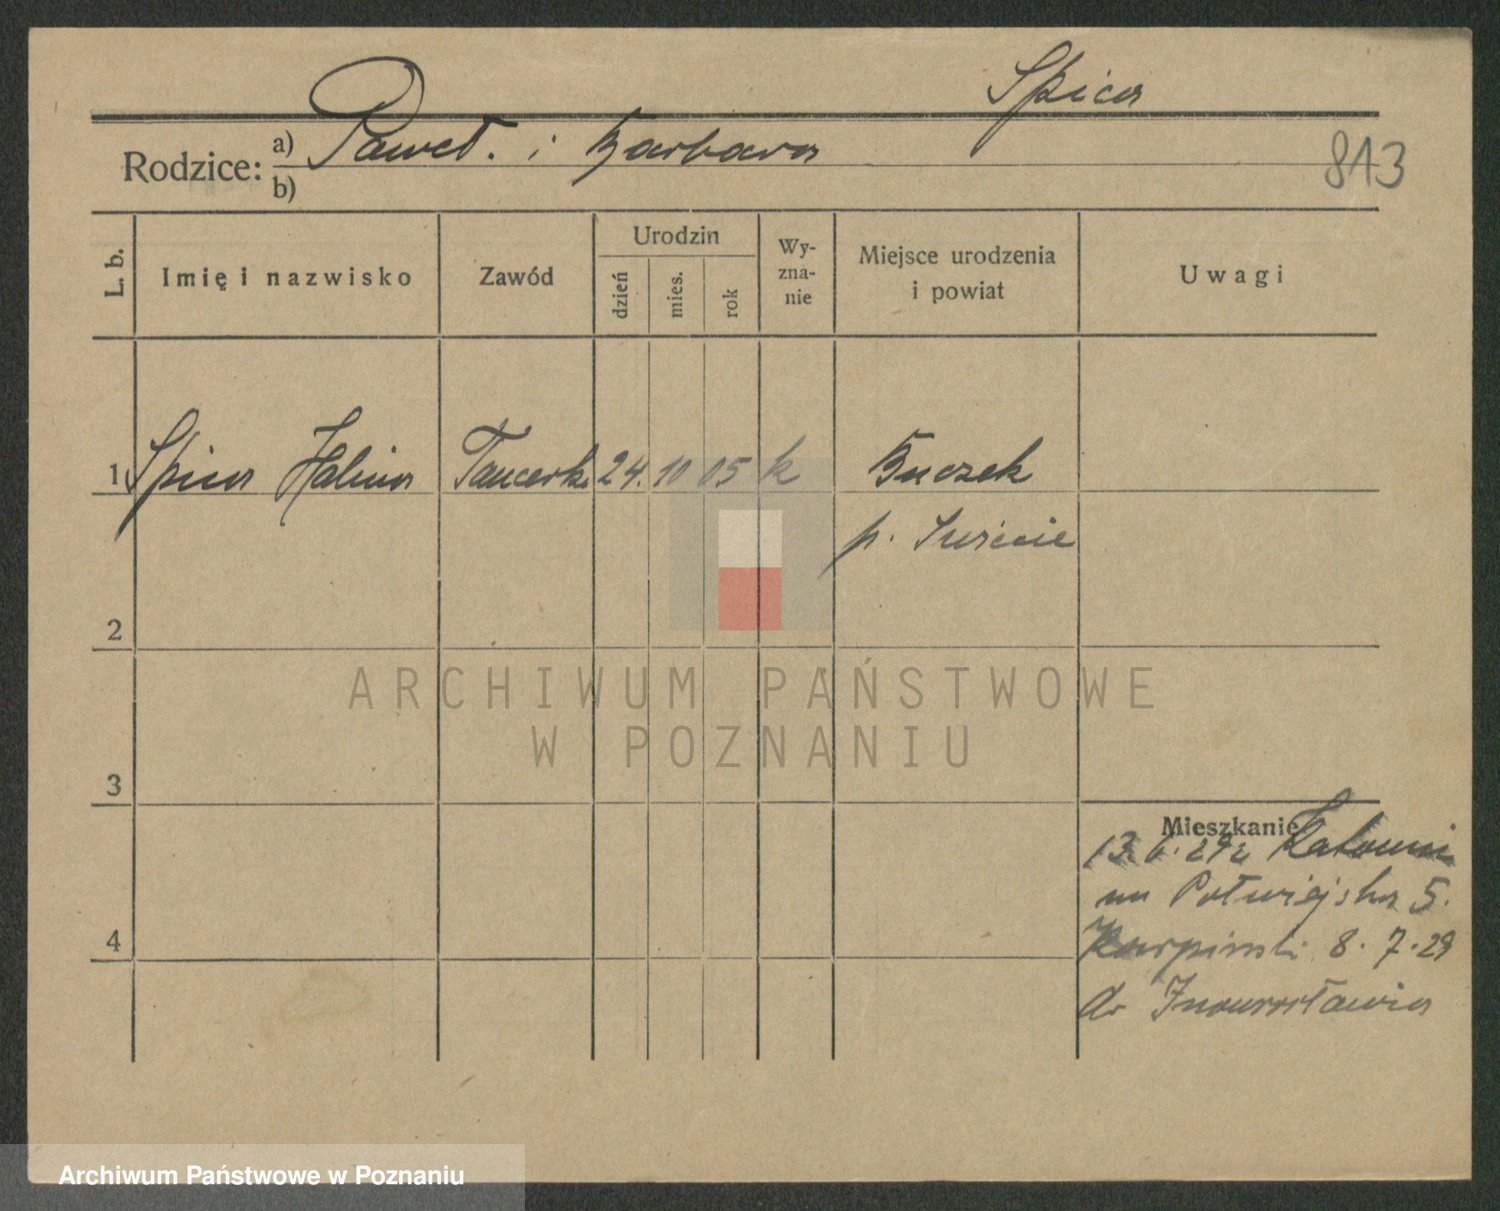 Spica
Rodzice: a) Paweł. i Barbara
b)
813
L. b.
Imię i nazwisko
Zawód
Urodzin
dzień
mies.
rok
Wy-
zna-
nie
Miejsce urodzenia
i powiat
Uwagi
1 Spica Halina Tancerk. 24. 10 05 k Buczek
p. Świecie
2
ARCHIWUM PAŃSTWOWE
W POZNANIU
3
Mieszkanie
13.6.29r Katowic
Półwiejska 5.
Karpiński 8.7.29
do Inowrocławia
4
Archiwum Państwowe w Poznaniu